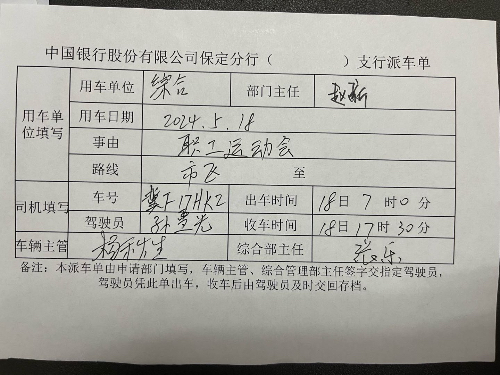 中国银行股份有限公司保定分行（ ）支行派车单
用车单位填写 用车单位 综合 部门主任 赵
用车日期 2024.5.18
事由 职工运动会
路线 市 至
司机填写 车号 冀F17HK2 出车时间 18日 7 时 0 分
驾驶员 孙 光 收车时间 18日 17 时 30 分
车辆主管 杨 生 综合部主任 张 乐
备注：本派车单由申请部门填写，车辆主管、综合管理部主任签字交指定驾驶员，
驾驶员凭此单出车，收车后由驾驶员及时交回存档。